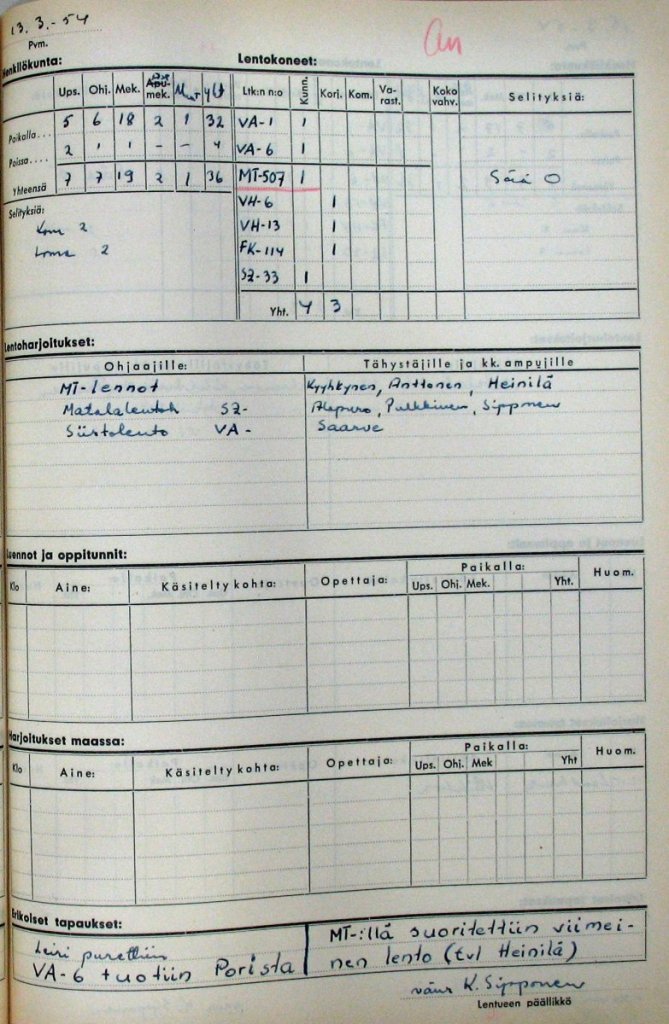 13. 3.-54
Pvm.
Henkilökunta:
Ups. Ohj. Mek. Apu-mek. yht
Paikalla... 5 6 18 2 1 32
Poissa.... 2 1 1 - - 4
Yhteensä 7 7 19 2 1 36
Selityksiä:
Kom 2
Loma 2
Lentokoneet:
Ltk:n n:o Kunn. Kori. Kom. Va-rast. Koko vahv. Selityksiä:
VA-1 1
VA-6 1
MT-507 1 Sää O
VH-6 1
VH-13 1
FK-114 1
SZ-33 1
Yht. 4 3
Lentoharjoitukset:
Ohjaajille: Tähystäjille ja kk. ampujille
MT-lennot Kyyhkynen, Anttonen, Heinilä
Matalalentoh SZ- Alapuro, Pulkkinen, Sipponen
Siirtolento VA- Saarve
Luennot ja oppitunnit:
Klo Aine: Käsitelty kohta: Opettaja: Paikalla: Huom.
Ups. Ohj. Mek. Yht.
Harjoitukset maassa:
Klo Aine: Käsitelty kohta: Opettaja: Paikalla: Huom.
Ups. Ohj. Mek Yht
Erikoiset tapaukset:
Leiri purettiin
VA-6 tuotiin Porista
MT-:illä suoritettiin viimei-
nen lento (tvl Heinilä)
vänr K. Sipponen
Lentueen päällikkö